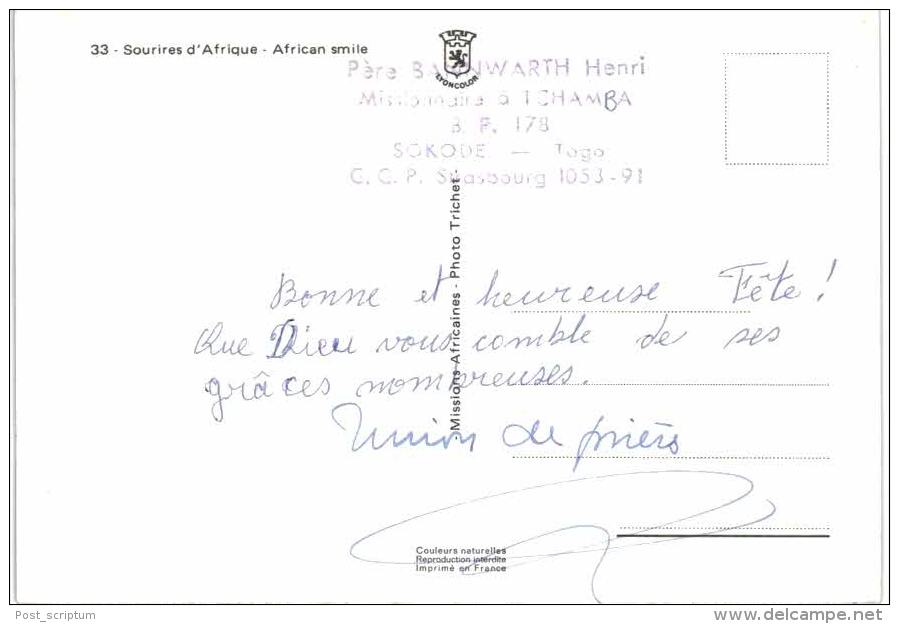 33 - Sourires d'Afrique - African smile
LYONCOLOR
Père BANNWARTH Henri
Missionnaire à TCHAMBA
B. P. 178
SOKODE — Togo
C. C. P. Strasbourg 1053-91
Missions Africaines - Photo Trichet
Bonne et heureuse Fête !
Que Dieu vous comble de ses
grâces nombreuses.
Union de prière
Couleurs naturelles
Reproduction interdite
Imprimé en France
Post_scriptum
www.delcampe.net